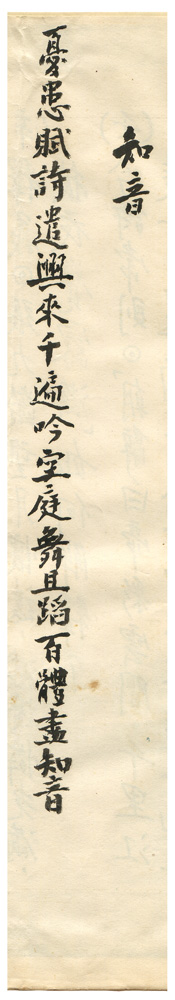 知音
憂患賦詩遣興來千遍吟空庭舞且蹈百體盡知音